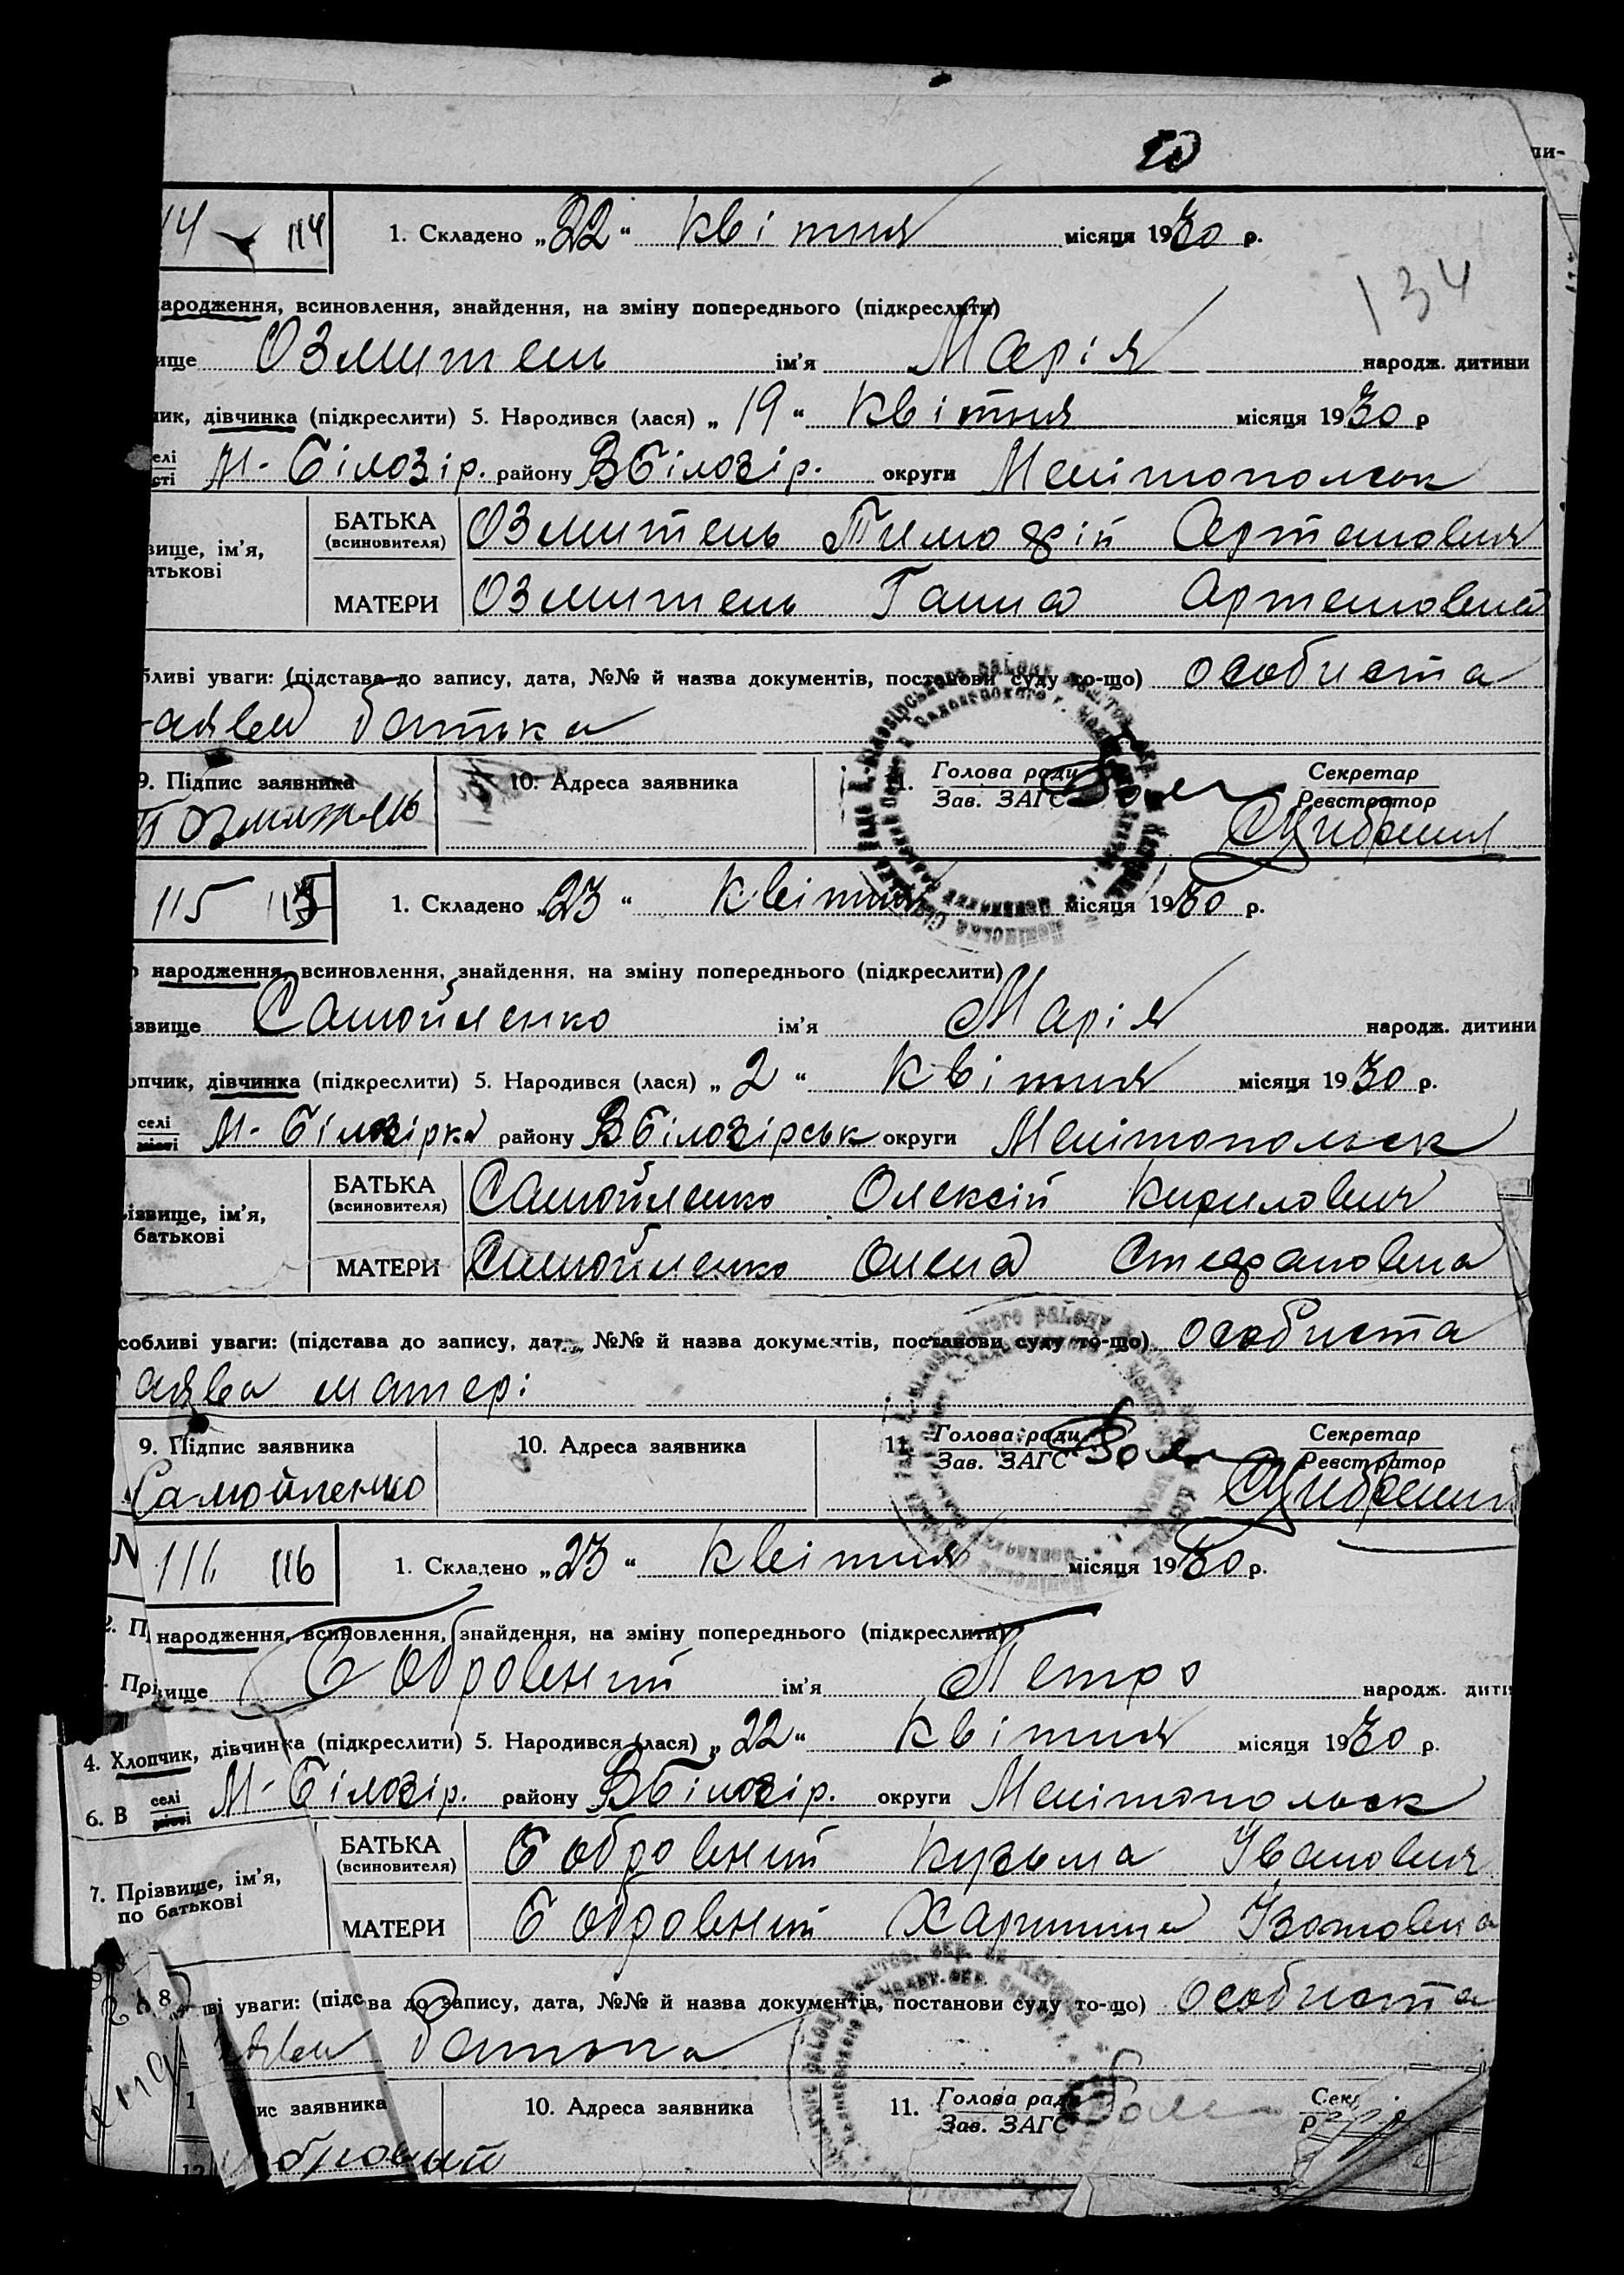 20
пи-
14 114 1. Складено „22“ квітня місяця 1930 р.
134
ародження, всиновлення, знайдення, на зміну попереднього (підкреслити)
ище Озмитель ім’я Марія народж. дитини
ик, дівчинка (підкреслити) 5. Народився (лася) „19“ квітня місяця 1930 р
елі
сті М-Білозір. району ВБілозір. округи Мелітопольськ
БАТЬКА
(всиновителя) Озмитель Тимофій Артемович
вище, ім’я,
атькові
МАТЕРИ Озмитель Ганна Артемовна
бливі уваги: (підстава до запису, дата, №№ й назва документів, постанови суду то-що) особиста
аява батька
9. Підпис заявника 10. Адреса заявника 11. Голова ради Секретар
Зав. ЗАГС Реєстратор
Т Озмитель
115 115 1. Складено „23“ квітня місяця 1930 р.
народження, всиновлення, знайдення, на зміну попереднього (підкреслити)
ізвище Самойленко ім’я Марія народж. дитини
опчик, дівчинка (підкреслити) 5. Народився (лася) „2“ квітня місяця 1930 р.
селі
місті М-Білозірка району ВБілозірськ округи Мелітопольськ
БАТЬКА
(всиновителя) Самойленко Олексій Кирилович
різвище, ім’я,
батькові
МАТЕРИ Самойленко Олена Стефановна
собливі уваги: (підстава до запису, дата, №№ й назва документів, постанови суду то-що) особиста
аява матері
9. Підпис заявника 10. Адреса заявника 11. Голова ради Секретар
Зав. ЗАГС Реєстратор
Самойленко
N 116 116 1. Складено „23“ квітня місяця 1930 р.
2. П народження, всиновлення, знайдення, на зміну попереднього (підкреслити)
Прі вище Бобровний ім’я Петро народж. дити
4. Хлопчик, дівчинка (підкреслити) 5. Народився (лася) „22“ квітня місяця 1930 р.
6. В селі
місті М-Білозір. району ВБілозір. округи Мелітопольськ
БАТЬКА
(всиновителя) Бобровний Кузьма Іванович
7. Прізвище, ім’я,
по батькові
МАТЕРИ Бобровний Харитина Ізотовна
8 ві уваги: (підс ва до запису, дата, №№ й назва документів, постанови суду то-що) особиста
аява батька
ис заявника 10. Адреса заявника 11. Голова ради Сек
Зав. ЗАГС Р
12